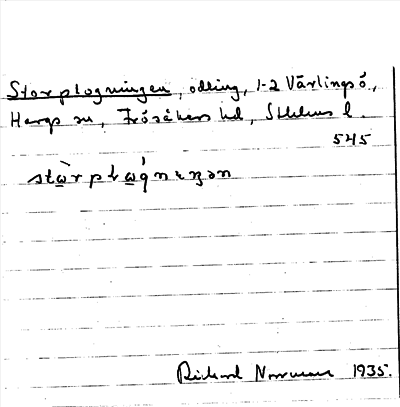 Storplogningen, odling, 1-2 Värlingsö,
Hargs sn, Frösåkers hd, Sthlms l.
545
stàrpɫáǵnıŋən
Rickard 1935.